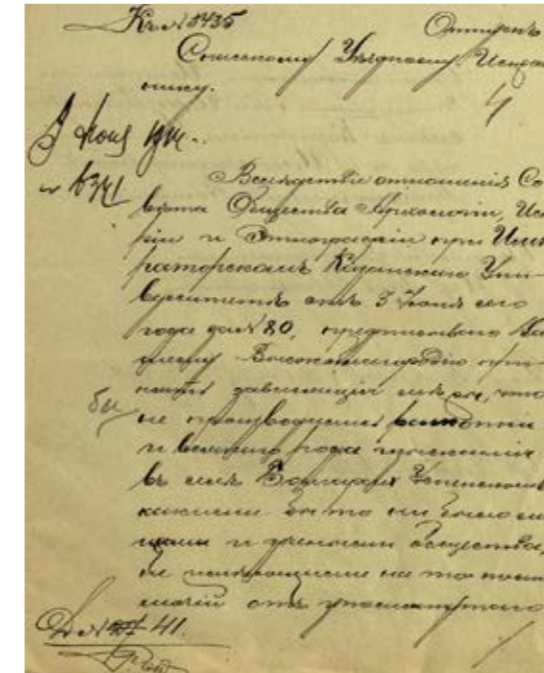 Къ № 5435 Отпускъ
Спасскому Уѣздному Исправ
нику.
4
9 Іюня 1914.
№ 6341
Вслѣдствіе отношенія Со
вѣта Общества Археологіи, Исто
ріи и Этнографіи при Импе
раторскомъ Казанскомъ Уни-
верситетѣ отъ 3 Іюня сего
года за № 80, предписываю Ва
шему Высокоблагородію при-
нять зависящія мѣры, что
бы не производились раскопки
и всякаго рода изысканія
въ селѣ Болгарахъ Успенскомъ
какими бы то ни было ли
цами и учеными обществами,
не имѣющими на то полно
мочій отъ упомянутаго
Д № 41.